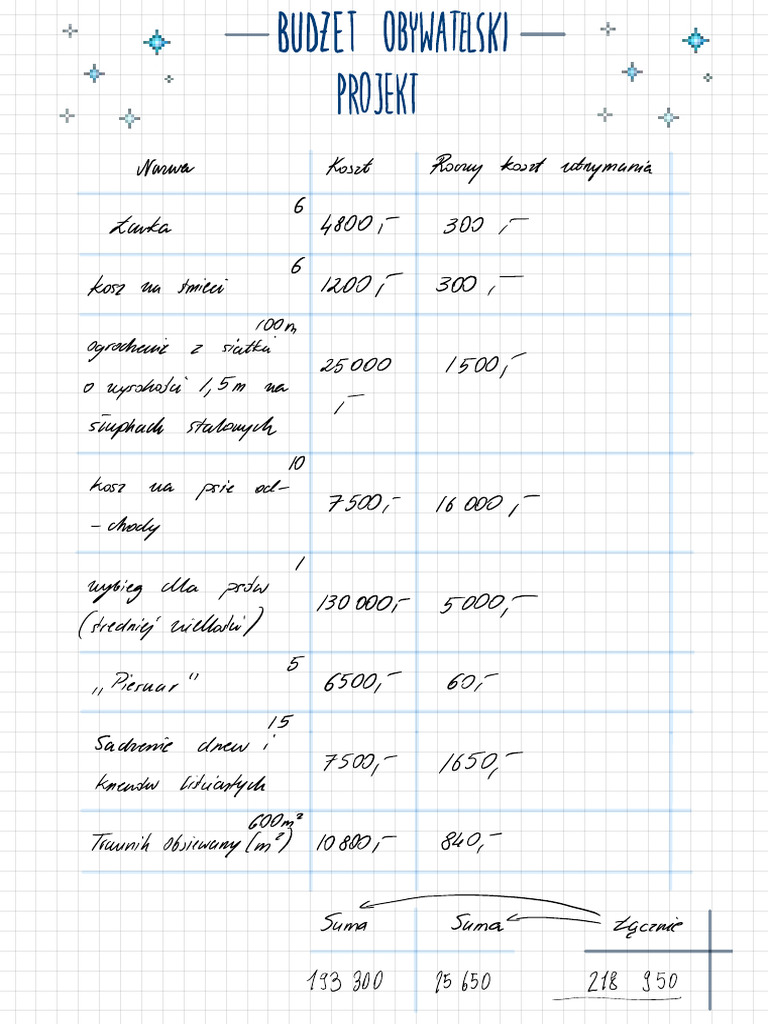 BUDŻET OBYWATELSKI
PROJEKT
Nazwa Koszt Roczny koszt utrzymania
6
Ławka 4800,- 300,-
6
kosz na śmieci 1200,- 300,-
100m
ogrodzenie z siatki
o wysokości 1,5m na
słupkach stalowych
25 000
,-
1500,-
10
kosz na psie od-
-chody
7500,- 16 000,-
1
wybieg dla psów
(średniej wielkości)
130 000,- 5000,-
5
„Piesuar" 6500,- 60,-
15
Sadzenie drzew i
krzewów liściastych
7500,- 1650,-
600m²
Trawnik obsiewany (m²) 10 800,- 840,-
Suma Suma Łącznie
193 300 25 650 218 950